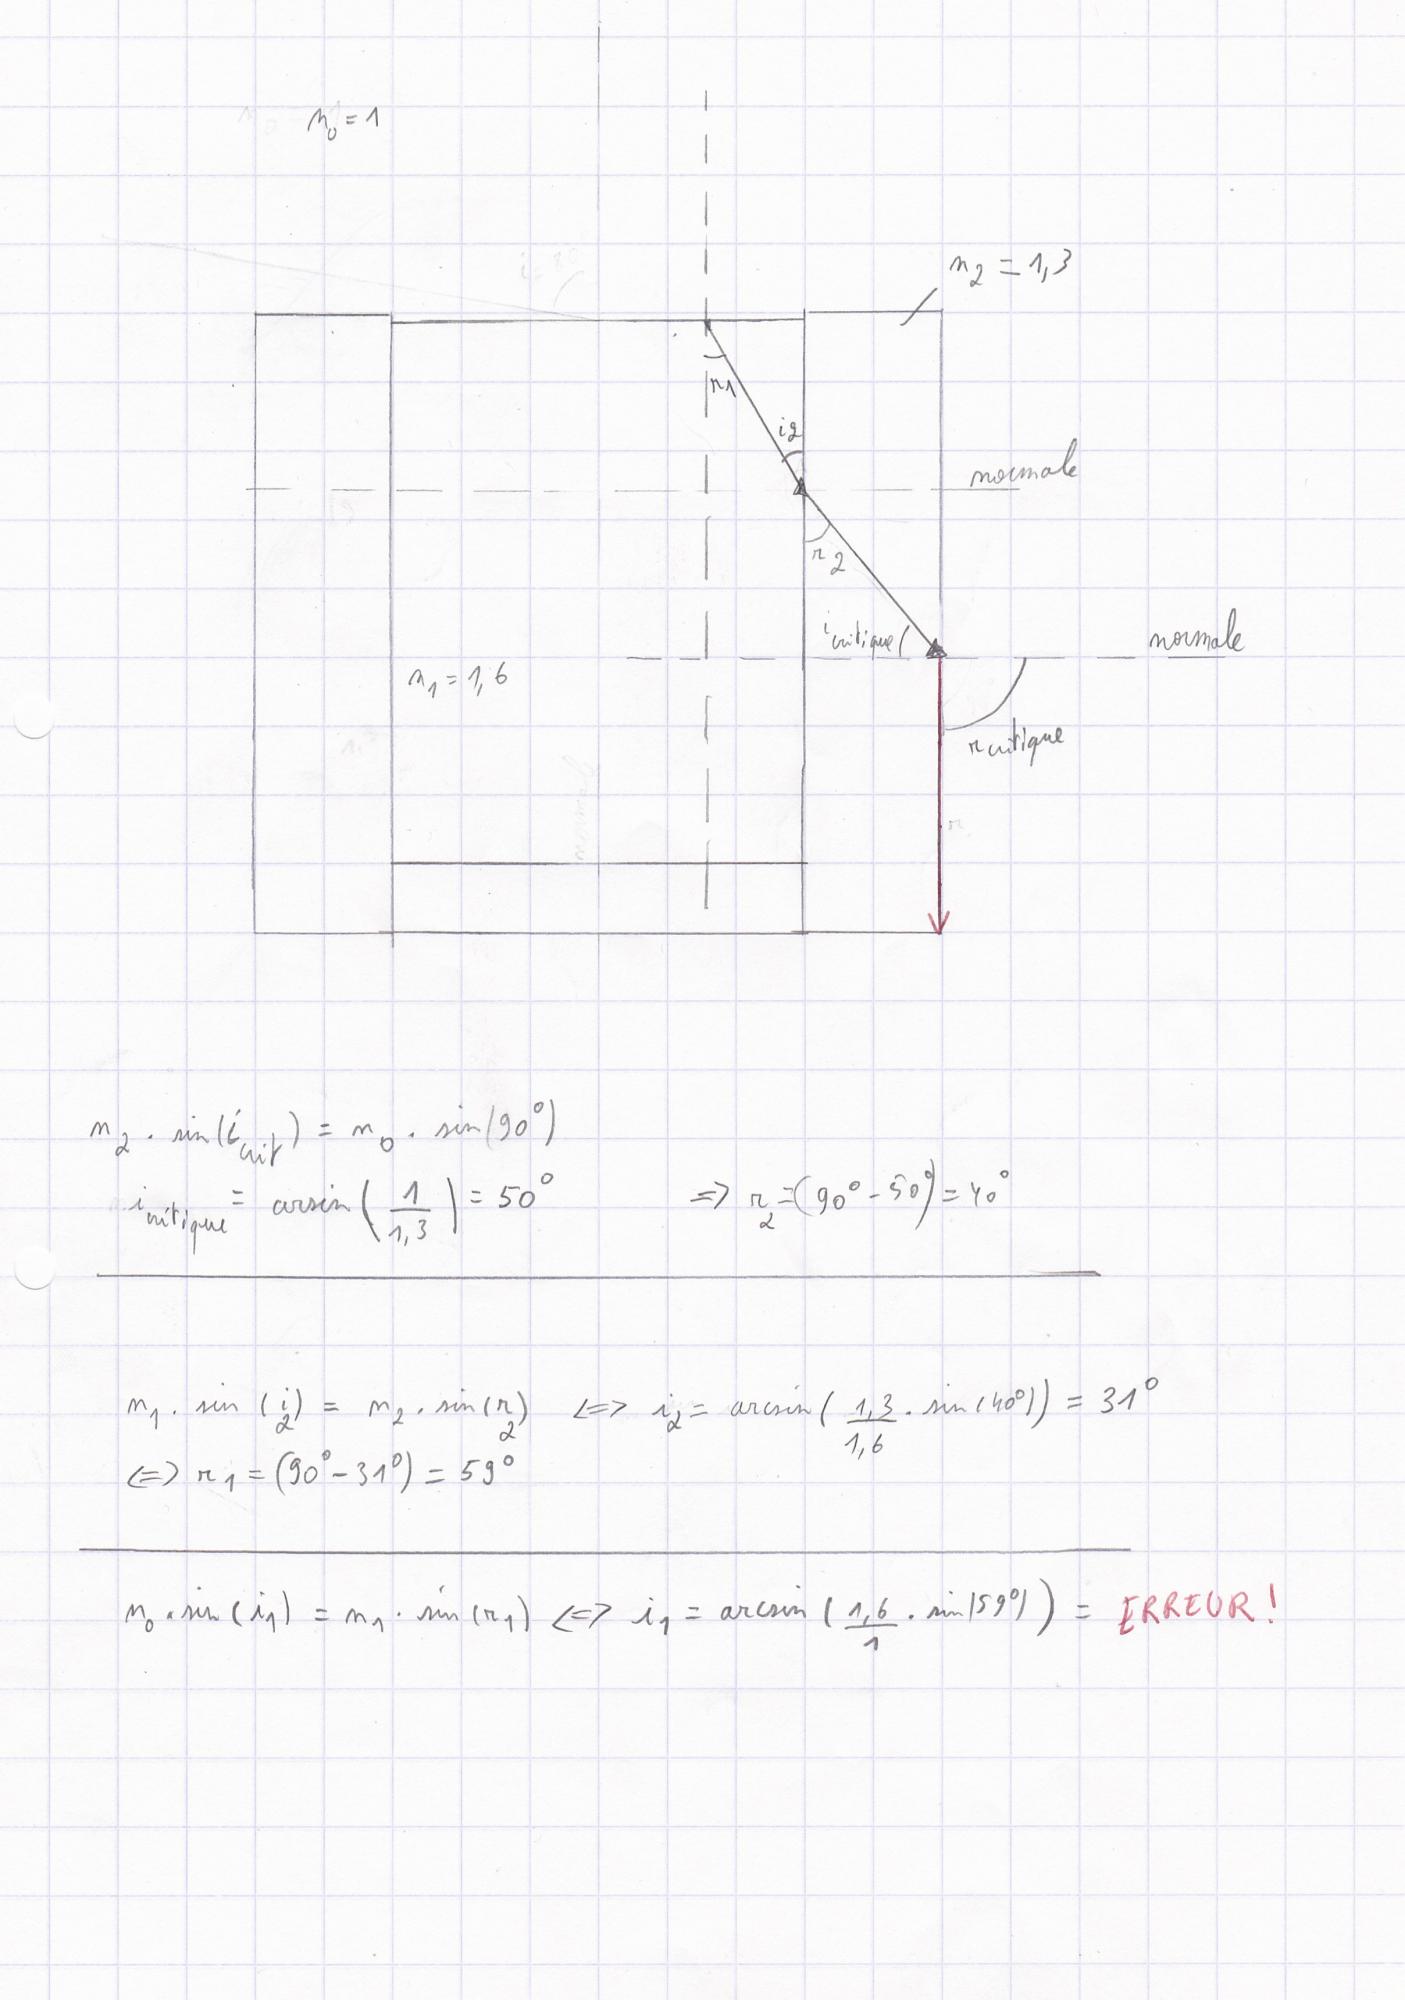 n₀ = 1
n₂ = 1,3
r1
i2
normale
r2
i critique
normale
n₁ = 1,6
r critique
n₂ . sin(i crit) = n₀ . sin(90°)
i critique = arcsin(1/1,3) = 50° => r₂ = (90° - 50°) = 40°
n₁ . sin(i₂) = n₂ . sin(r₂) <=> i₂ = arcsin(1,3/1,6 . sin(40°)) = 31°
<=> r₁ = (90° - 31°) = 59°
n₀ . sin(i₁) = n₁ . sin(r₁) <=> i₁ = arcsin(1,6/1 . sin(59°)) = ERREUR !